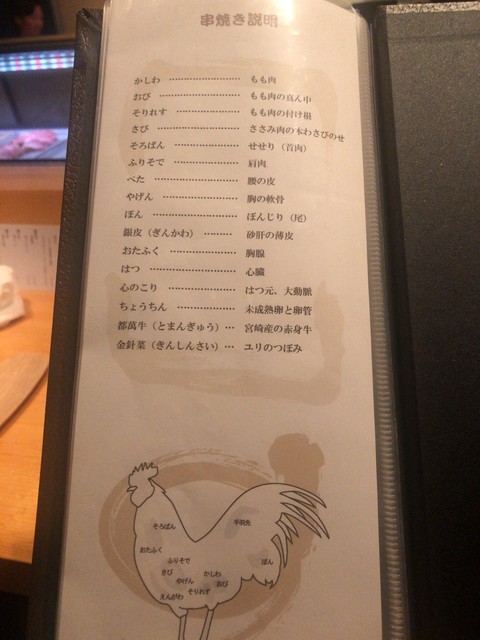 串焼き説明
かしわ ………………… もも肉
おび ………………… もも肉の真ん中
そりれす ………………… もも肉の付け根
さび ………………… ささみ肉の本わさびのせ
そろばん ………………… せせり（首肉）
ふりそで ………………… 肩肉
ぺた ………………… 腰の皮
やげん ………………… 胸の軟骨
ぼん ………………… ぼんじり（尾）
銀皮（ぎんかわ） ………… 砂肝の薄皮
おたふく ………………… 胸腺
はつ ………………… 心臓
心のこり ………………… はつ元、大動脈
ちょうちん ……………… 未成熟卵と卵管
都萬牛（とまんぎゅう） … 宮崎産の赤身牛
金針菜（きんしんさい） … ユリのつぼみ
そろばん
手羽先
おたふく
ふりそで
ぼん
さび
かしわ
やげん
おび
えんがわ
そりれす